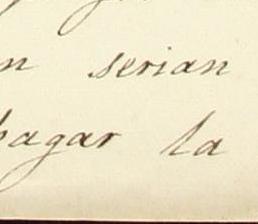 n serian
pagar la